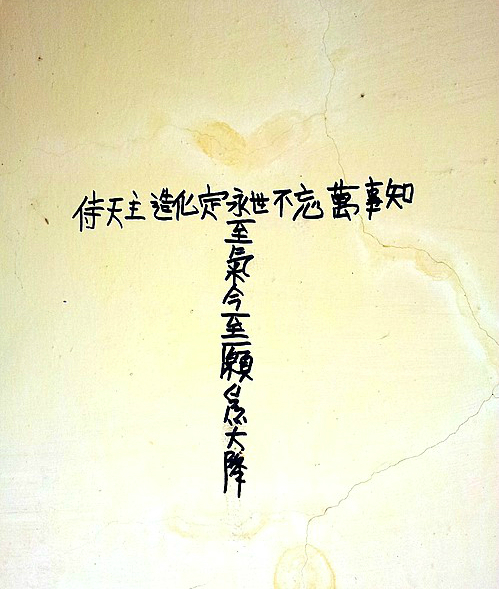 侍天主造化定永世不忘萬事知
至氣今至願為大降